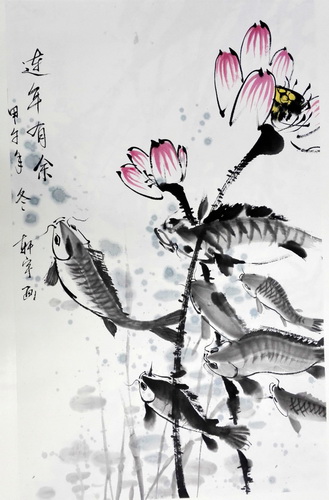 连年有余
甲午年冬
轩宇画